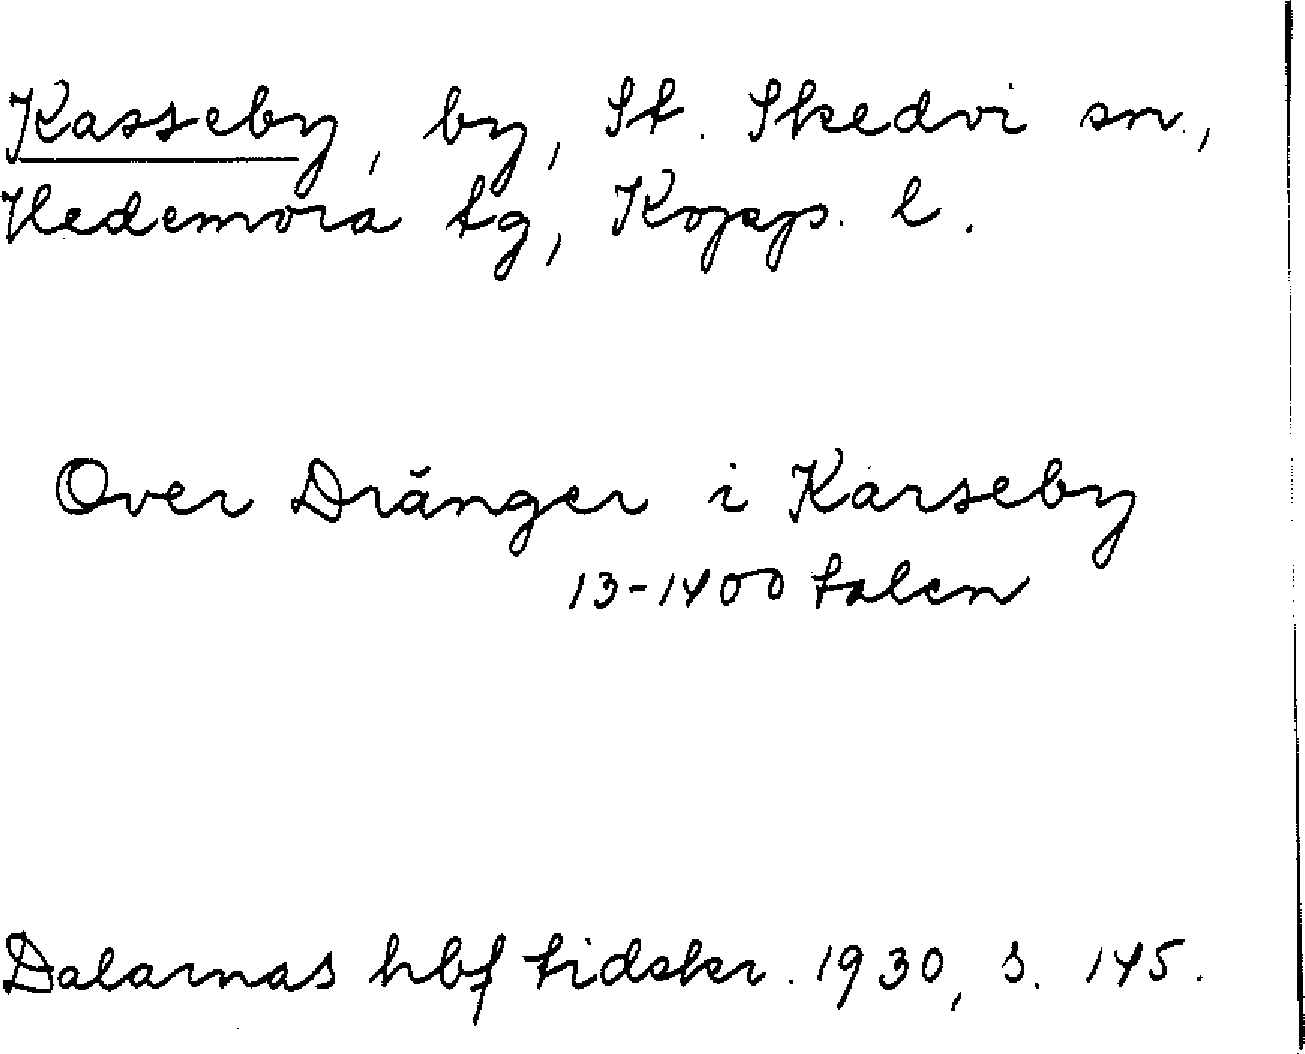 Kasseby, by, St. Skedvi sn.,
Hedemora tg, Kopp. l.
Over Drånger i Karseby
13-1400 talen
Dalarnas hbf tidskr. 1930, s. 145.